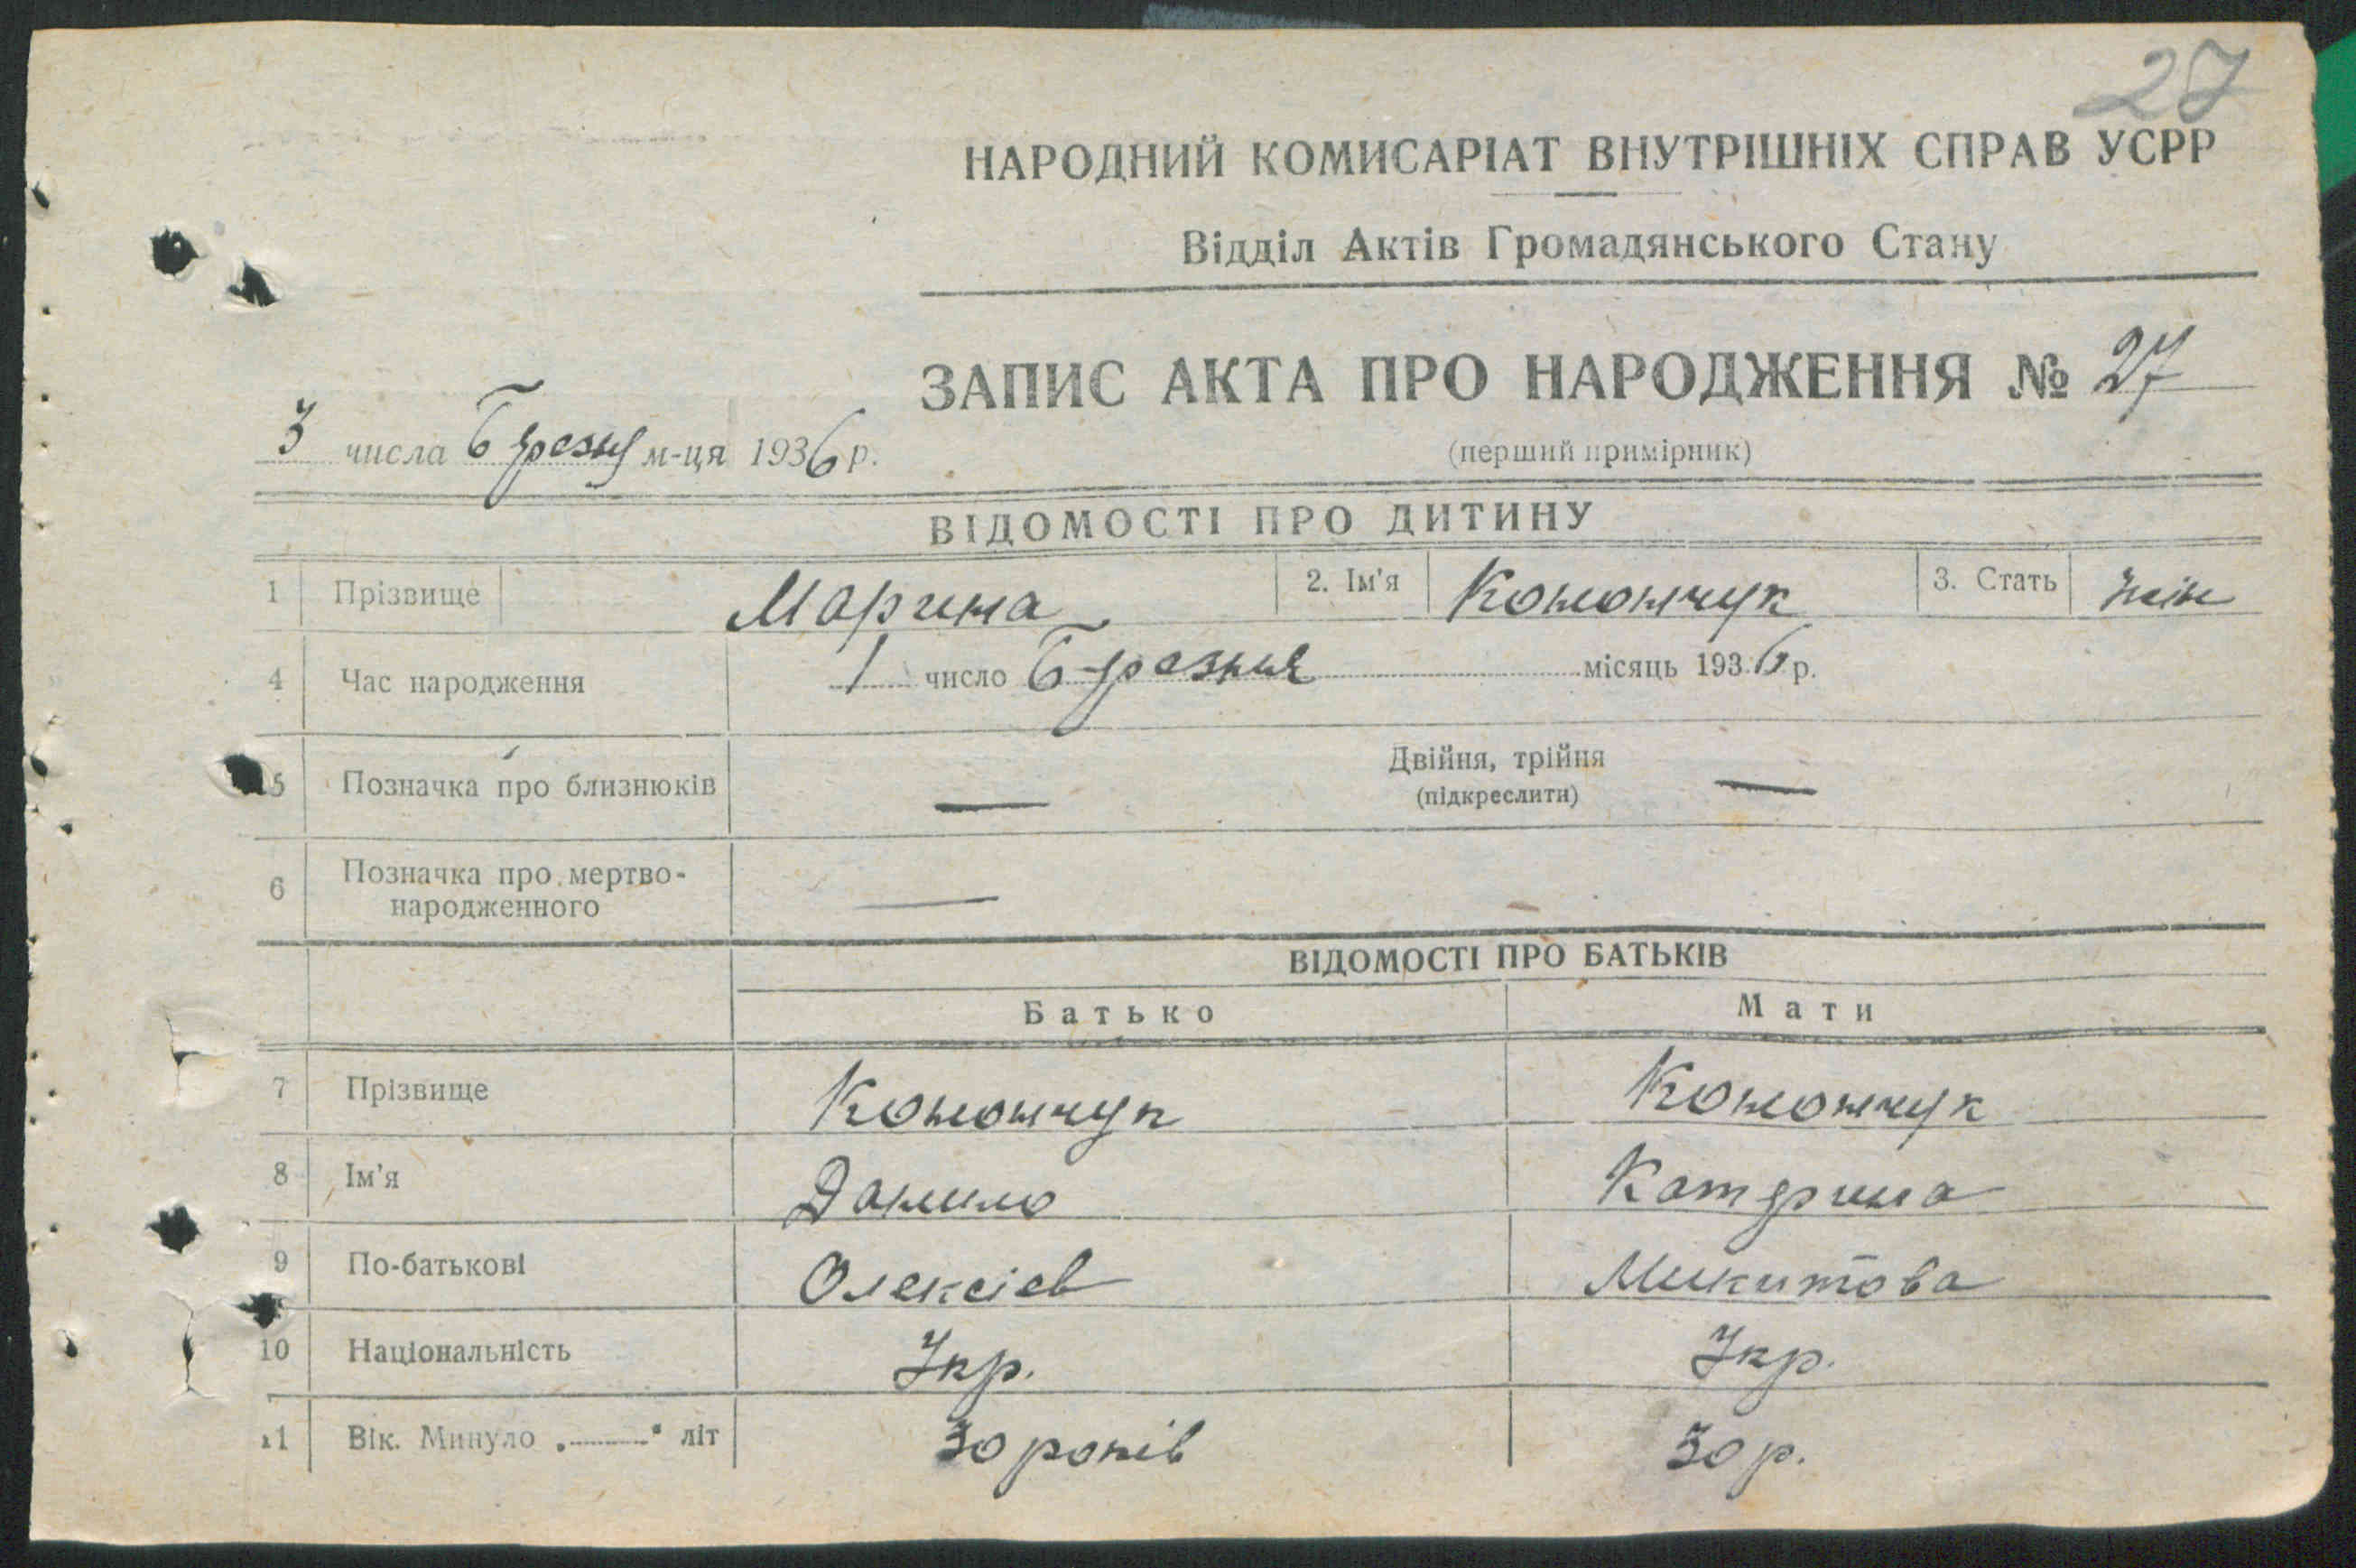 27
НАРОДНИЙ КОМИСАРІАТ ВНУТРІШНІХ СПРАВ УСРР
Відділ Актів Громадянського Стану
ЗАПИС АКТА ПРО НАРОДЖЕННЯ № 27
3 числа березня м-ця 1936 р.
(перший примірник)
ВІДОМОСТІ ПРО ДИТИНУ
1 Прізвище Марина 2. Ім'я Конончук 3. Стать жін
4 Час народження 1 число березня місяць 1936 р.
5 Позначка про близнюків — Двійня, трійня —
(підкреслити)
6 Позначка про мертво-
народженного —
ВІДОМОСТІ ПРО БАТЬКІВ
Батько Мати
7 Прізвище Конончук Конончук
8 Ім'я Данило Катерина
9 По-батькові Олексієв Микитова
10 Національність Укр. Укр.
11 Вік. Минуло „ “ літ 30 років 30 р.